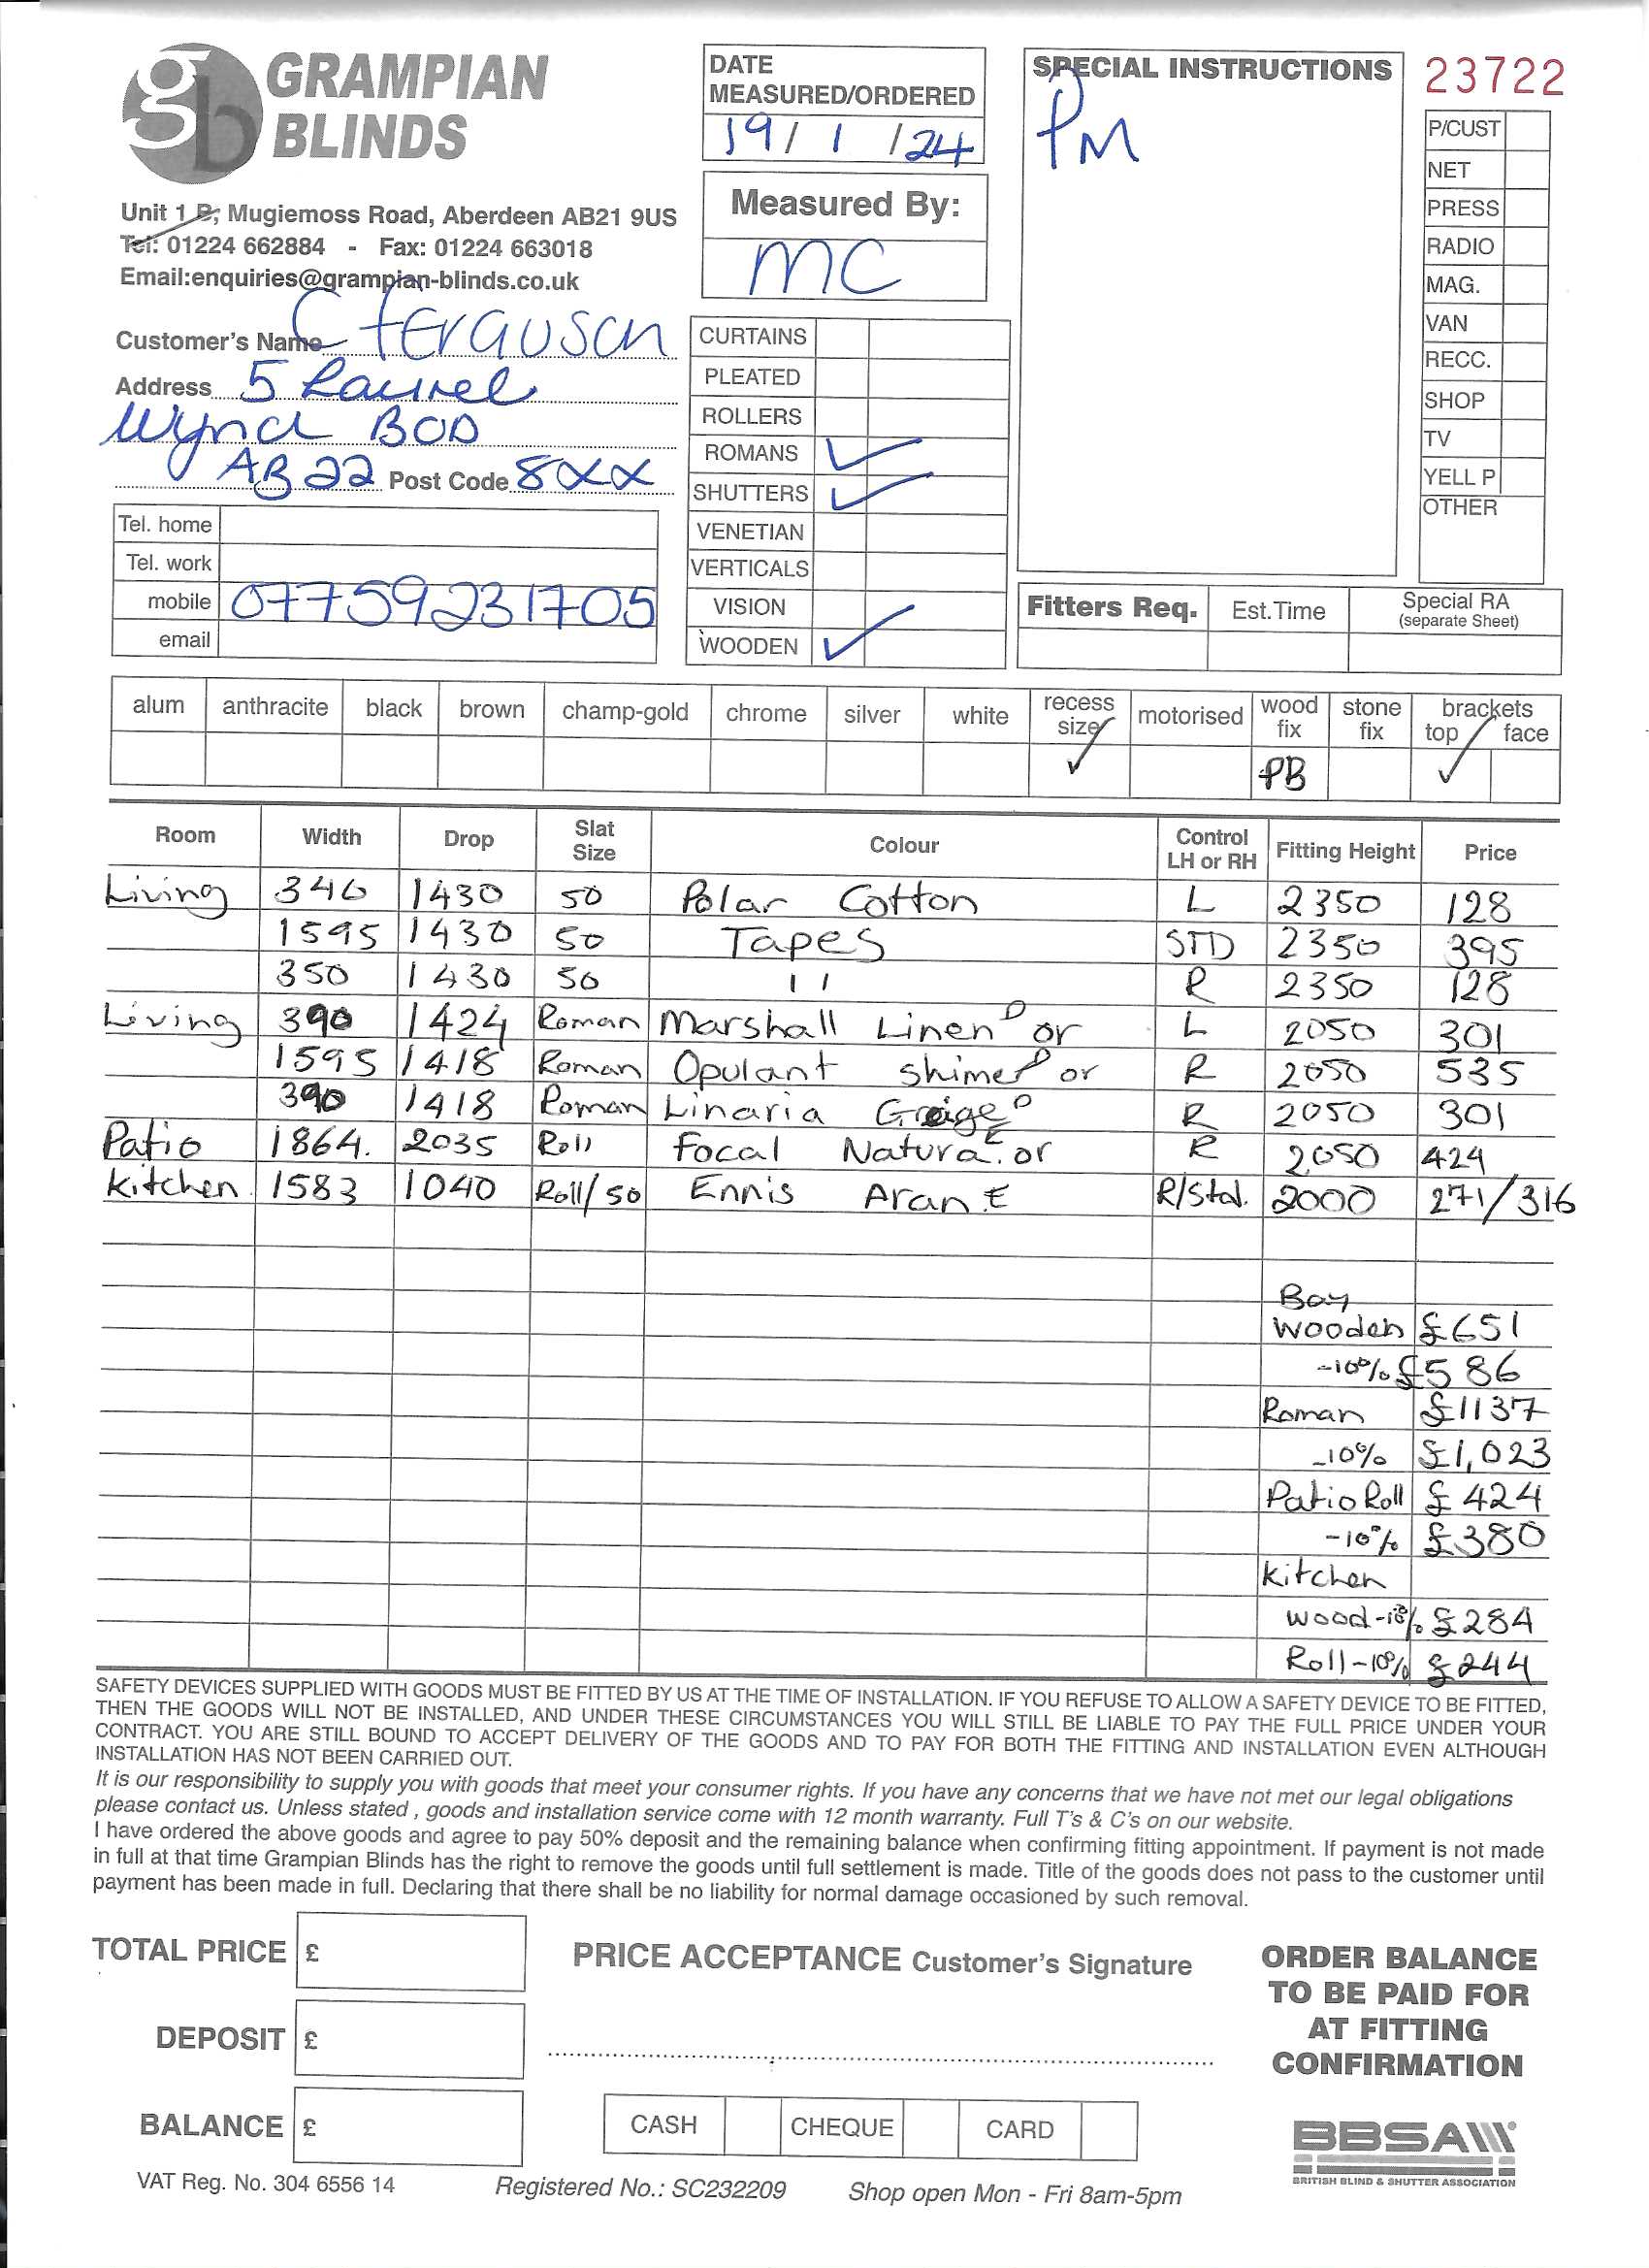 gb GRAMPIAN BLINDS
Unit 1 B, Mugiemoss Road, Aberdeen AB21 9US
Tel: 01224 662884 - Fax: 01224 663018
Email:enquiries@grampian-blinds.co.uk
Customer's Name C Ferguson
Address 5 Laurel
Wynd BOD
AB22 Post Code 8XX
Tel. home
Tel. work
mobile 07759231705
email
DATE
MEASURED/ORDERED
19/ 1 /24
Measured By:
MC
CURTAINS
PLEATED
ROLLERS
ROMANS ✓
SHUTTERS ✓
VENETIAN
VERTICALS
VISION
WOODEN ✓
SPECIAL INSTRUCTIONS
PM
23722
P/CUST
NET
PRESS
RADIO
MAG.
VAN
RECC.
SHOP
TV
YELL P
OTHER
Fitters Req. Est.Time Special RA
(separate Sheet)
alum anthracite black brown champ-gold chrome silver white recess size motorised wood fix stone fix brackets top face
✓ PB ✓
Room Width Drop Slat Size Colour Control LH or RH Fitting Height Price
Living 346 1430 50 Polar Cotton L 2350 128
1595 1430 50 Tapes STD 2350 395
350 1430 50 11 R 2350 128
Living 390 1424 Roman Marshall Linen D or L 2050 301
1595 1418 Roman Opulant Shimer D or R 2050 535
390 1418 Roman Linaria Greige D R 2050 301
Patio 1864. 2035 Roll Focal Natura. E or R 2050 424
Kitchen 1583 1040 Roll/50 Ennis Aran E R/Std. 2000 271/316
Bay
Wooden £651
-10% £586
Roman £1137
-10% £1,023
Patio Roll £424
-10% £380
Kitchen
Wood -10% £284
Roll -10% £244
SAFETY DEVICES SUPPLIED WITH GOODS MUST BE FITTED BY US AT THE TIME OF INSTALLATION. IF YOU REFUSE TO ALLOW A SAFETY DEVICE TO BE FITTED,
THEN THE GOODS WILL NOT BE INSTALLED, AND UNDER THESE CIRCUMSTANCES YOU WILL STILL BE LIABLE TO PAY THE FULL PRICE UNDER YOUR
CONTRACT. YOU ARE STILL BOUND TO ACCEPT DELIVERY OF THE GOODS AND TO PAY FOR BOTH THE FITTING AND INSTALLATION EVEN ALTHOUGH
INSTALLATION HAS NOT BEEN CARRIED OUT.
It is our responsibility to supply you with goods that meet your consumer rights. If you have any concerns that we have not met our legal obligations
please contact us. Unless stated , goods and installation service come with 12 month warranty. Full T's & C's on our website.
I have ordered the above goods and agree to pay 50% deposit and the remaining balance when confirming fitting appointment. If payment is not made
in full at that time Grampian Blinds has the right to remove the goods until full settlement is made. Title of the goods does not pass to the customer until
payment has been made in full. Declaring that there shall be no liability for normal damage occasioned by such removal.
TOTAL PRICE £
DEPOSIT £
BALANCE £
PRICE ACCEPTANCE Customer's Signature
CASH CHEQUE CARD
ORDER BALANCE
TO BE PAID FOR
AT FITTING
CONFIRMATION
BBSA
BRITISH BLIND & SHUTTER ASSOCIATION
VAT Reg. No. 304 6556 14 Registered No.: SC232209 Shop open Mon - Fri 8am-5pm